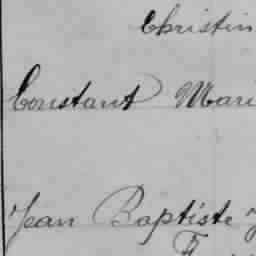 Christin
Constant Mari
Jean Baptiste